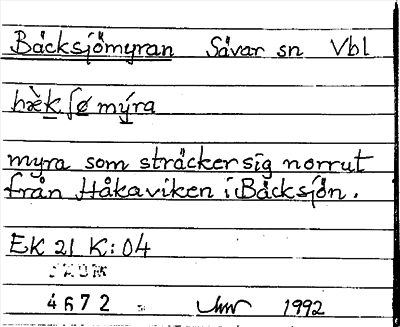 Bäcksjömyran Sävar sn Vbl
bæ̀k ʃø mýra
myra som sträcker sig norrut
från Håkaviken i Bäcksjön.
EK 21 K:04
4672 1992